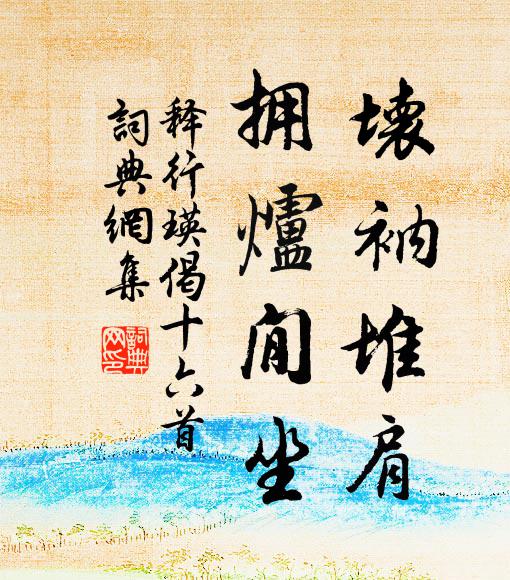 壞衲堆肩
拥爐閒坐
释行瑛偈十六首
詞典網集
詞典網印